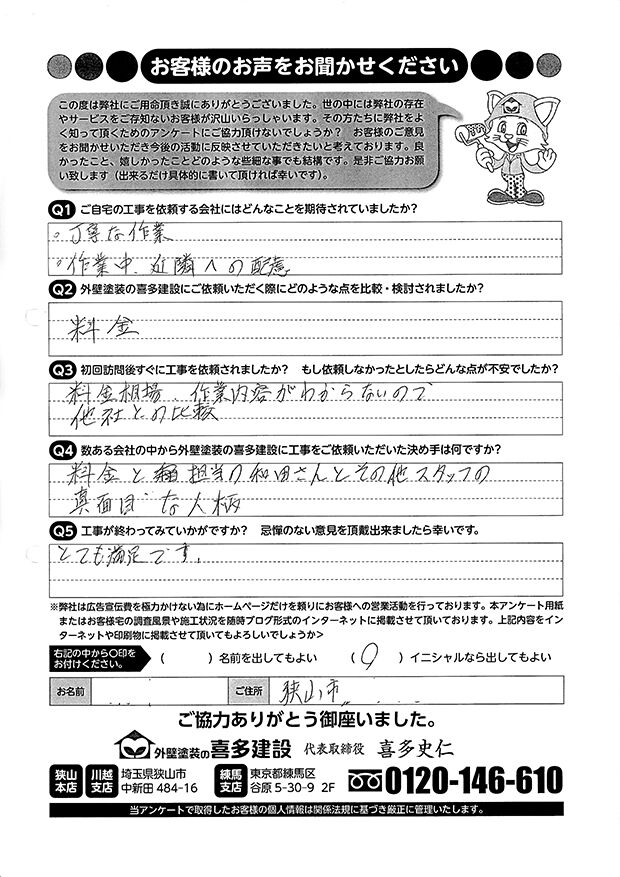 お客様のお声をお聞かせください
この度は弊社にご用命頂き誠にありがとうございました。世の中には弊社の存在
やサービスをご存知ないお客様が沢山いらっしゃいます。その方たちに弊社をよ
く知って頂くためのアンケートにご協力頂けないでしょうか？　お客様のご意見
をお聞かせいただき今後の活動に反映させていただきたいと考えております。良
かったこと、嬉しかったことどのような些細な事でも結構です。是非ご協力お願
い致します（出来るだけ具体的に書いて頂ければ幸いです）。
Q1 ご自宅の工事を依頼する会社にはどんなことを期待されていましたか？
。丁寧な作業
。作業中、近隣への配慮
Q2 外壁塗装の喜多建設にご依頼いただく際にどのような点を比較・検討されましたか？
料金
Q3 初回訪問後すぐに工事を依頼されましたか？　もし依頼しなかったとしたらどんな点が不安でしたか？
料金相場、作業内容がわからないので
他社との比較
Q4 数ある会社の中から外壁塗装の喜多建設に工事をご依頼いただいた決め手は何ですか？
料金と 担当の和田さんとその他スタッフの
真面目な人柄
Q5 工事が終わってみていかがですか？　忌憚のない意見を頂戴出来ましたら幸いです。
とても満足です。
※弊社は広告宣伝費を極力かけない為にホームページだけを頼りにお客様への営業活動を行っております。本アンケート用紙
またはお客様宅の調査風景や施工状況を随時ブログ形式のインターネットに掲載させて頂いております。上記内容をイン
ターネットや印刷物に掲載させて頂いてもよろしいでしょうか＞
右記の中から〇印を
お付けください。
（　　）名前を出してもよい　（○）イニシャルなら出してもよい
お名前　ご住所　狭山市
ご協力ありがとう御座いました。
外壁塗装の喜多建設　代表取締役　喜多史仁
狭山本店 川越支店 埼玉県狭山市中新田 484-16 練馬支店 東京都練馬区谷原 5-30-9 2F 0120-146-610
当アンケートで取得したお客様の個人情報は関係法規に基づき厳正に管理いたします。